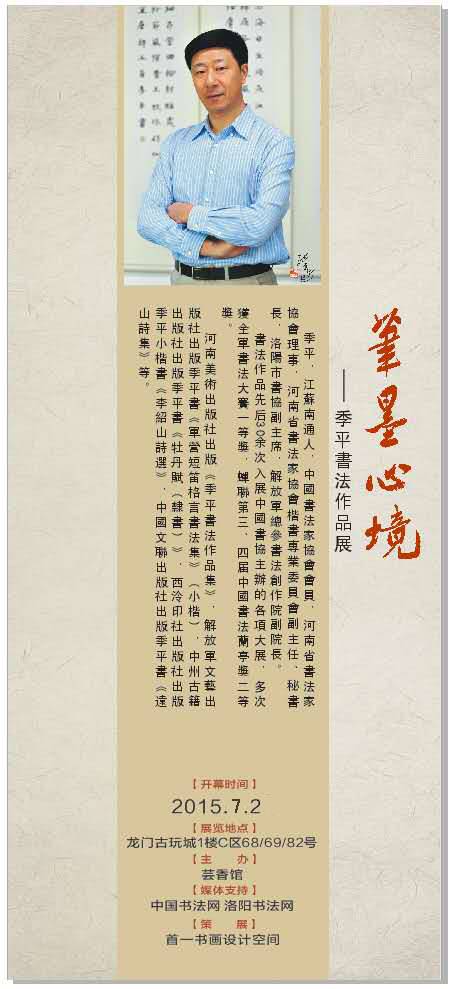 筆墨心境
——季平書法作品展
季平，江蘇南通人，中國書法家協會會員，河南省書法家
協會理事，河南省書法家協會楷書專業委員會副主任、秘書
長，洛陽市書協副主席，解放軍總參書法創作院副院長。
書法作品先后30余次入展中國書協主辦的各項大展，多次
獲全軍書法大賽一等獎，蟬聯第三、四届中國書法蘭亭獎二等
獎。
河南美術出版社出版《季平書法作品集》，解放軍文藝出
版社出版季平書《軍營短笛格言書法集》（小楷），中州古籍
出版社出版季平書《牡丹賦（隸書）》，西泠印社出版社出版
季平小楷書《李紹山詩選》，中國文聯出版社出版季平書《遠
山詩集》等。
【开幕时间】
2015.7.2
【展览地点】
龙门古玩城1楼C区68/69/82号
【主 办】
芸香馆
【媒体支持】
中国书法网 洛阳书法网
【策 展】
首一书画设计空间